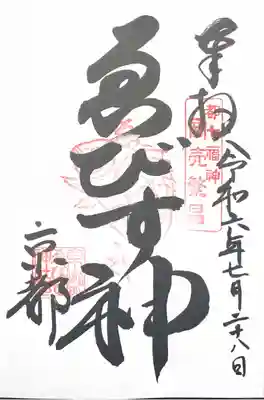 奉拝 令和六年七月二十八日
都七福神
商売繁昌
ゑびす神
京都